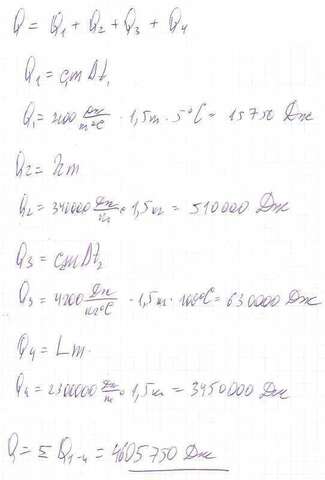 Q = Q₁ + Q₂ + Q₃ + Q₄
Q₁ = c₁m Δt₁
Q₁ = 2100 Дж/кг°C · 1,5кг · 5°C = 15750 Дж
Q₂ = λm
Q₂ = 340000 Дж/кг · 1,5кг = 510000 Дж
Q₃ = c₂m Δt₂
Q₃ = 4200 Дж/кг°C · 1,5кг · 100°C = 630000 Дж
Q₄ = Lm.
Q₄ = 2300000 Дж/кг · 1,5кг = 3450000 Дж
Q = Σ Q₁₋₄ = 4605750 Дж